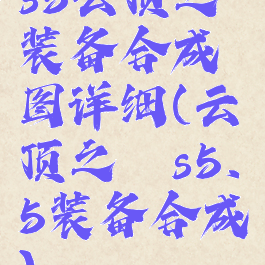 s5云顶之
装备合成
图详细(云
顶之 s5.
5装备合成
)